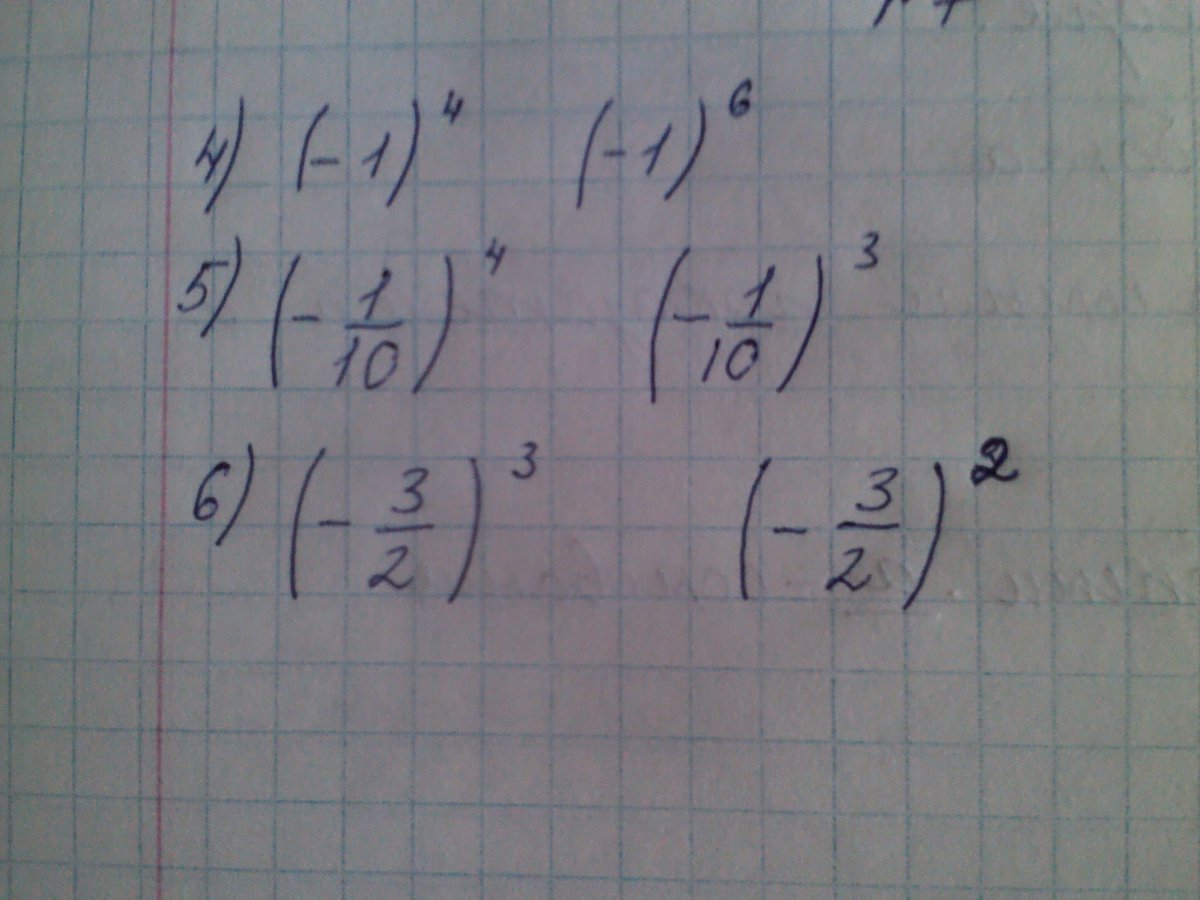 4) (-1)^4 (-1)^6
5) (-1/10)^4 (-1/10)^3
6) (-3/2)^3 (-3/2)^2